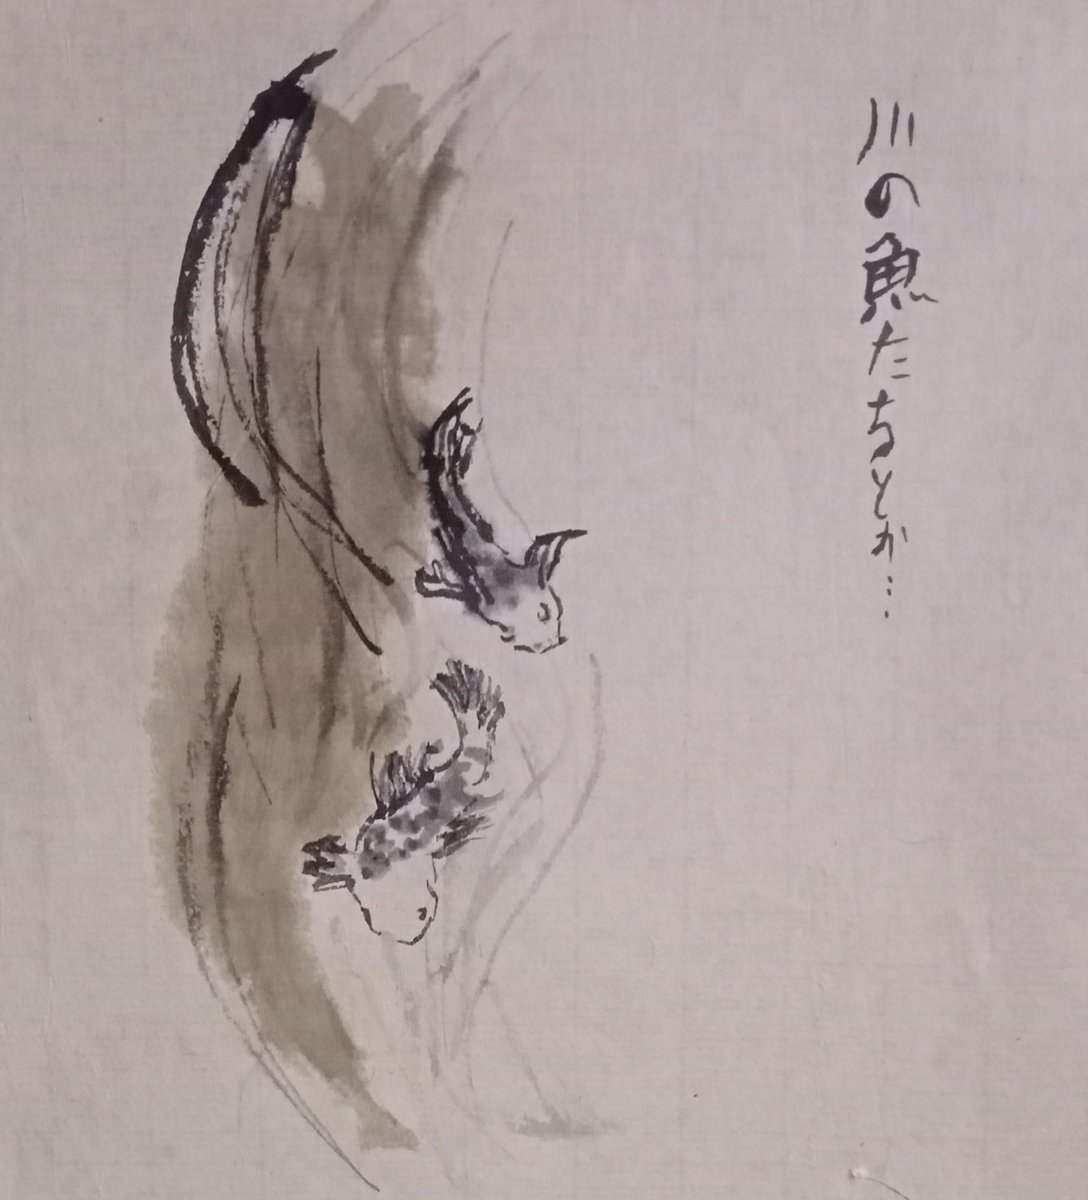 川の魚たちとか…